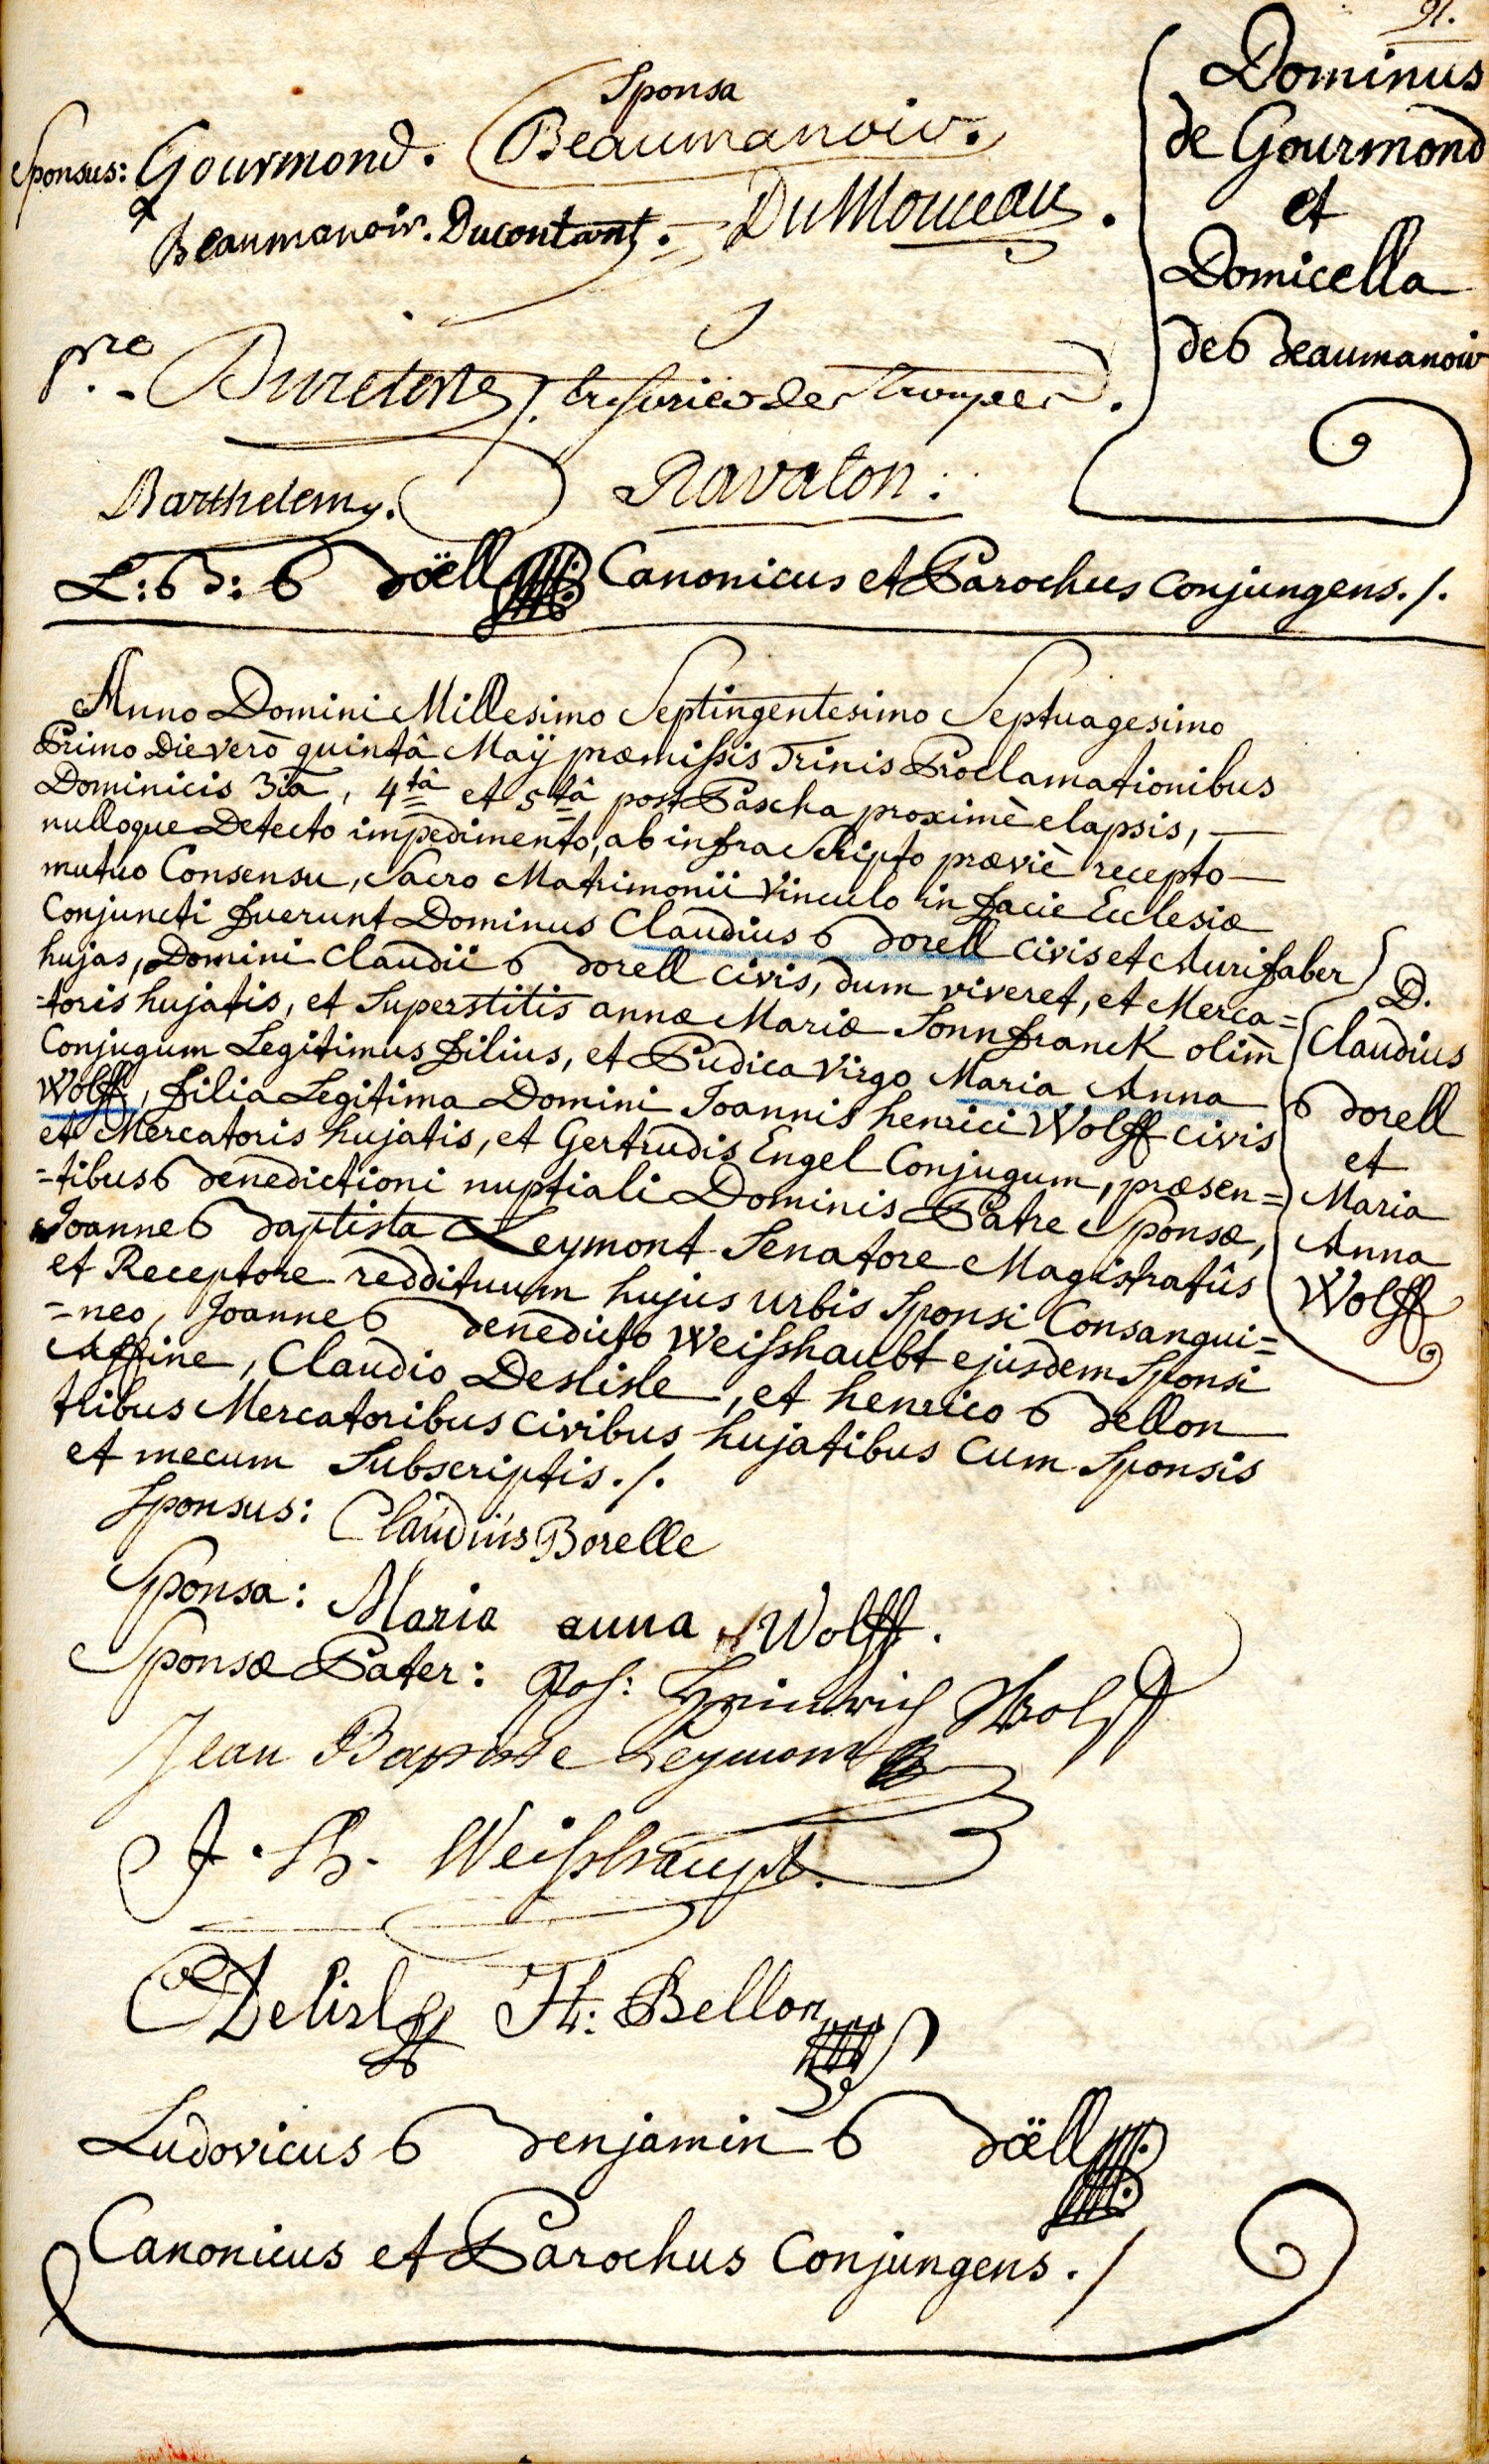 91.
Dominus
de Gourmond
et
Domicella
de Beaumanoir
Sponsa
Sponsus: Gourmond. Beaumanoir.
Beaumanoir. Ducontant. DuMouceau.
tresorier des troupes.
Barthelemy. Ravaton.
L: B: Böell Canonicus et Parochus conjungens./.
Anno Domini Millesimo Septingentesimo Septuagesimo
Primo Die verò quintâ Maÿ præmissis Trinis Proclamationibus
Dominicis 3iâ, 4tâ et 5tâ post Pascha proximè elapsis,
nulloque Detecto impedimento, ab infra Scripto præviè recepto
mutuo Consensu, Sacro Matrimonii Vinculo in facie Ecclesiæ
Conjuncti fuerunt Dominus Claudius Borell civis et Aurifaber
hujas, Domini Claudii Borell civis, dum viveret, et Merca=
=toris hujatis, et Superstitis annæ Mariæ Sonnfranck olim
Conjugum Legitimus filius, et Pudica Virgo Maria Anna
Wolff, filia Legitima Domini Joannis henrici Wolff civis
et Mercatoris hujatis, et Gertrudis Engel Conjugum, præsen=
=tibus Benedictioni nuptiali Dominis Patre Sponsæ,
Joanne Baptista Leymont Senatore Magistratûs
et Receptore reddituum hujus urbis Sponsi Consangui=
=neo, Joanne Benedicto Weisshaubt ejusdem Sponsi
Affine, Claudio Deslisle, et henrico Bellon
tribus Mercatoribus civibus hujatibus cum Sponsis
et mecum Subscriptis./.
D.
Claudius
Borell
et
Maria
Anna
Wolff
Sponsus: Claudius Borelle
Sponsa: Maria anna Wolff.
Sponsæ Pater: Joh: Heinrich Wolff
Jean Baptiste Leymont
J. B. Weisshaupt.
C Delisle H: Bellon
Ludovicus Benjamin Böell
Canonicus et Parochus Conjungens./